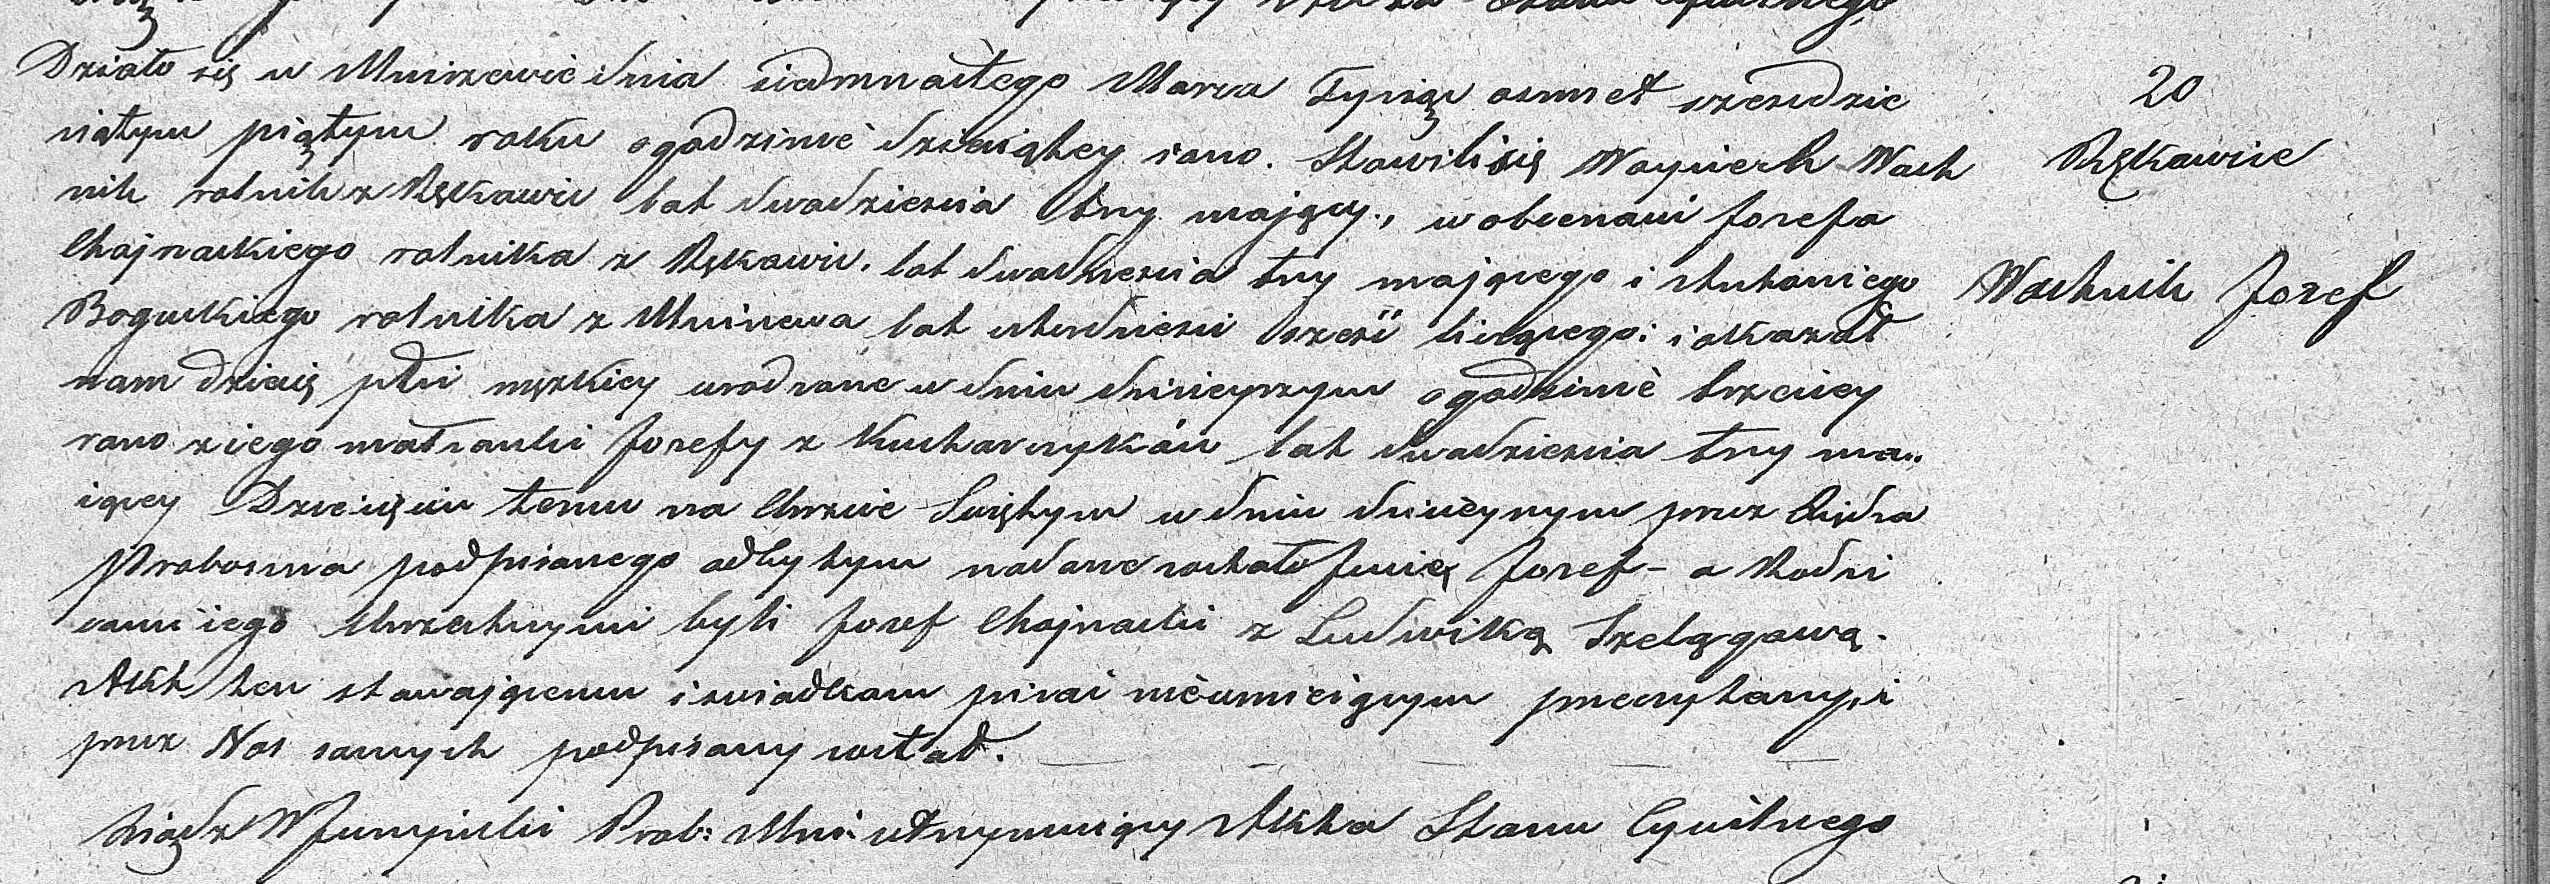 Działo się w Mniszewie dnia siedmnastego Marca Tysiąc osmset szescdzie
siątym piątym roku o godzinie dziesiątey rano. Stawili się Woyciech Wach
nik rolnik z Rękawic lat dwadziescia trzy mający, w obecnosci Jozefa
Chojnackiego rolnika z Rękawic, lat dwadziescia trzy mającego i
Boguckiego rolnika z Mniszewa lat czterdziesci szesć liczącego: i okazał
nam dziecię płci męzkiey urodzone w dniu dzisieyszym o godzinie trzeciey
rano z iego małzonki Jozefy z Kucharczyków lat dwadziescia trzy ma„
iącey Dziecięciu temu na Chrzcie Swiętym w dniu dzisieyszym przez Xiędza
Proboszcza podpisanego odbytym nadane zostało Jmię Jozef – a Rodzi
cami iego Chrzestnymi byli Jozef Chojnacki z Ludwiką Szelągową.
Akt ten stawającemu i swiadkom pisać nieumieiącym przeczytany, i
przez Nas samych podpisany został.
Xiądz Prob: Mni: utrzymuiący Akta Stanu Cywilnego
20
Rękawice
Wachnik Jozef